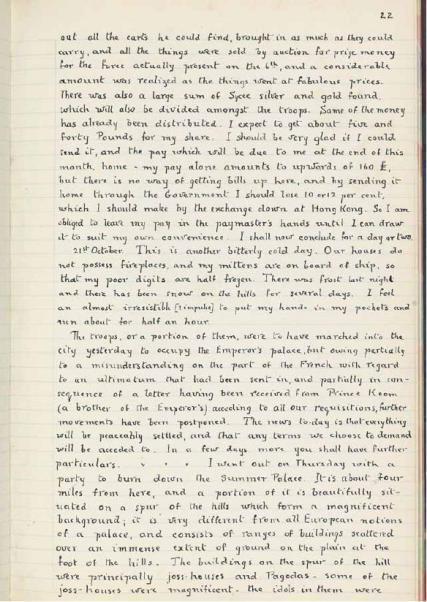 22
out all the carts he could find, brought in as much as they could
carry, and all the things were sold by auction for prize money
for the force actually present on the 6th, and a considerable
amount was realized as the things went at fabulous prices.
There was also a large sum of Sycee silver and gold found,
which will also be divided amongst the troops. Some of the money
has already been distributed. I expect to get about five and
forty Pounds for my share. I should be very glad if I could
send it, and the pay which will be due to me at the end of this
month, home - my pay alone amounts to upwards of 160 £,
but there is no way of getting bills up here, and by sending it
home through the Government I should lose 10 or 12 per cent,
which I should make by the exchange down at Hong Kong. So I am
obliged to leave my pay in the paymaster's hands until I can draw
it to suit my own convenience. I shall now conclude for a day or two.
21st October. This is another bitterly cold day. Our houses do
not possess fireplaces, and my mittens are on board of ship, so
that my poor digits are half frozen. There was frost last night
and there has been snow on the hills for several days. I feel
an almost irresistible [impulse] to put my hands in my pockets and
run about for half an hour.
The troops, or a portion of them, were to have marched into the
city yesterday to occupy the Emperor's palace, but owing partially
to a misunderstanding on the part of the French with regard
to an ultimatum that had been sent in, and partially in con-
sequence of a letter having been received from Prince Koom
(a brother of the Emperor's) acceding to all our requisitions, further
movements have been postponed. The news to-day is that everything
will be peaceably settled, and that any terms we choose to demand
will be acceded to. In a few days more you shall have further
particulars. . . . I went out on Thursday with a
party to burn down the Summer Palace. It is about four
miles from here, and a portion of it is beautifully sit-
uated on a spur of the hills which form a magnificent
background; it is very different from all European notions
of a palace, and consists of ranges of buildings scattered
over an immense extent of ground on the plain at the
foot of the hills. The buildings on the spur of the hill
were principally joss-houses and Pagodas - some of the
joss-houses were magnificent - the idols in them were